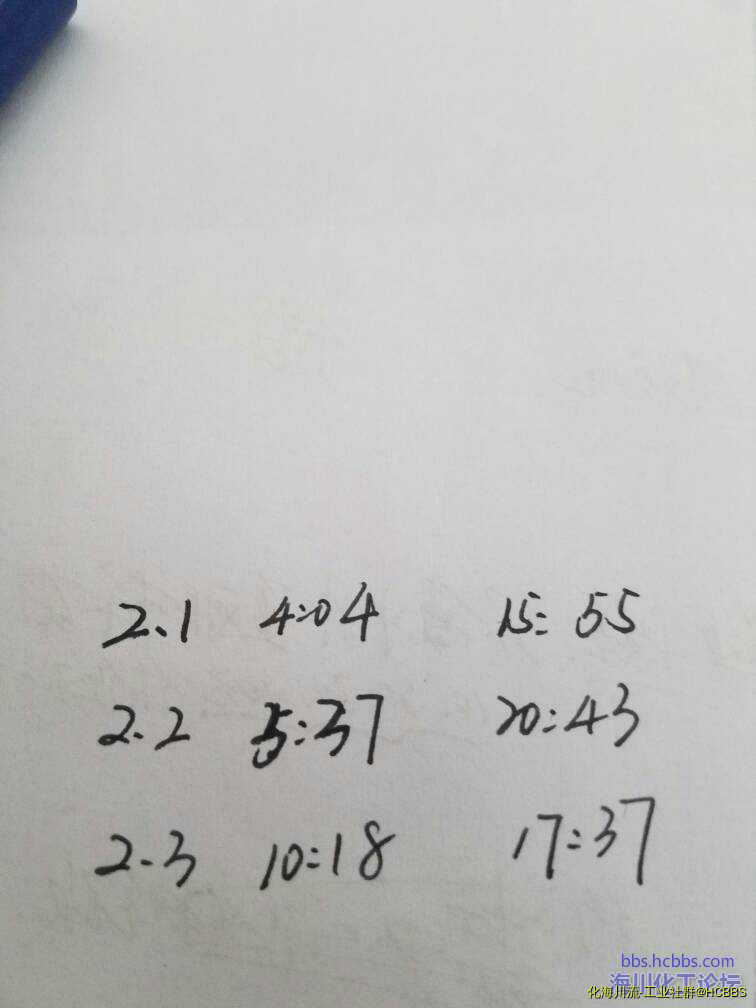 2.1 4:04 15:55
2.2 5:37 20:43
2.3 10:18 17:37
bbs.hcbbs.com
海川化工论坛
化海川流-工业社群@HCBBS